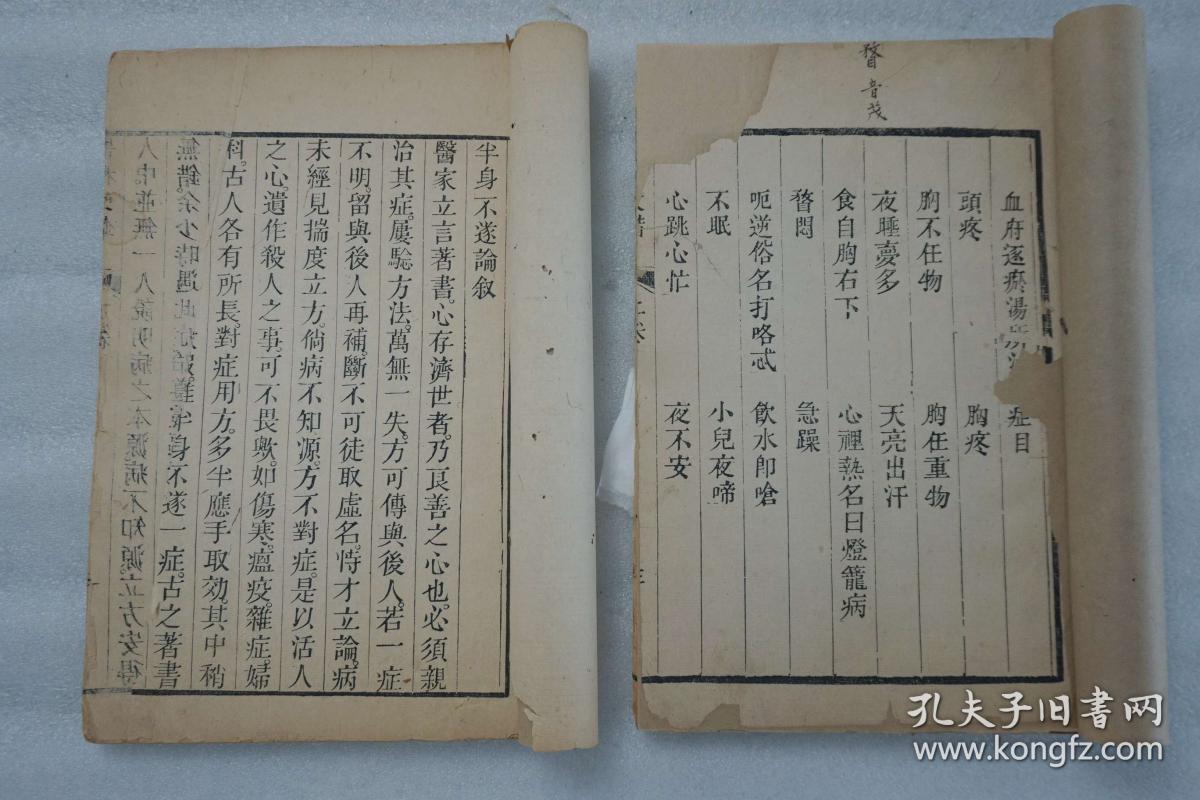 瞀音茂
血府逐瘀湯所 症目
頭疼 胸疼
胸不任物 胸任重物
夜睡夢多 天亮出汗
食自胸右下 心裡熱名曰燈籠病
瞀悶 急躁
呃逆俗名打咯忒 飲水即嗆
不眠 小兒夜啼
心跳心忙 夜不安
半身不遂論叙
醫家立言著書。心存濟世者。乃良善之心也。必須親
治其症。屢騐方法。萬無一失。方可傳與後人。若一症
不明。留與後人再補。斷不可徒取虛名。恃才立論。病
未經見揣度立方。倘病不知源。方不對症。是以活人
之心。遺作殺人之事。可不畏歟。如傷寒。瘟疫。雜症。婦
科。古人各有所長。對症用方。多半應手取效。其中稍
無錯。余少時遇此症。始遵 半身不遂一症。古之著書
人中並無一人說明病之本源。病不知源。立方安得
孔夫子旧书网
www.kongfz.com